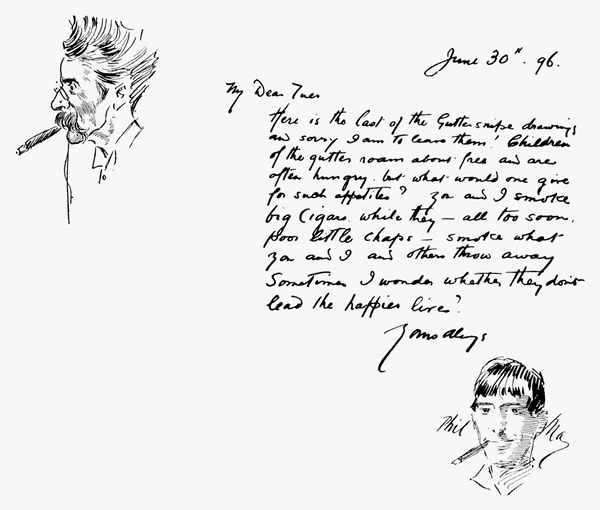 June 30". 96.
My Dear Tuer
Here is the last of the Guttersnipe drawings
and sorry I am to leave them! Children
of the gutter roam about free and are
often hungry. but what would one give
for such appetites? You and I smoke
big Cigars. while they — all too soon.
poor little chaps — smoke what
you and I and others throw away
Sometimes I wonder whether they dont
lead the happier lives?
Yours always
Phil May